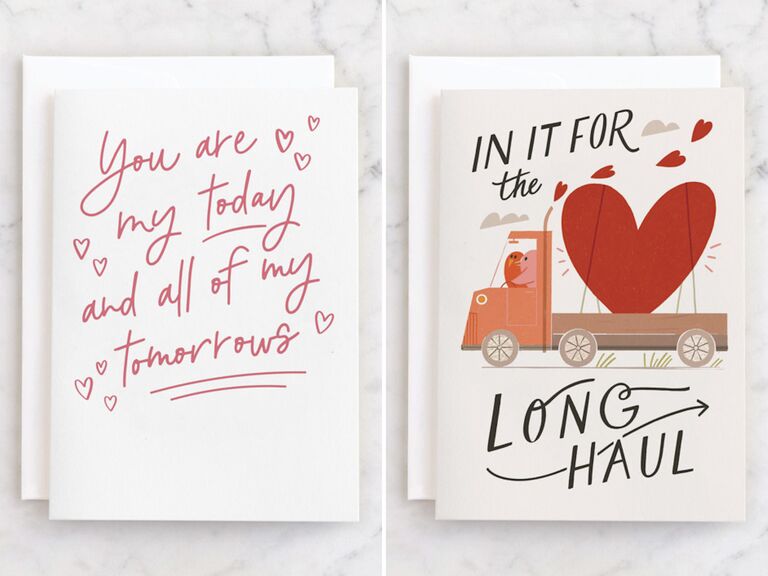 You are
my today
and all of my
tomorrows
IN IT FOR
the
LONG
HAUL